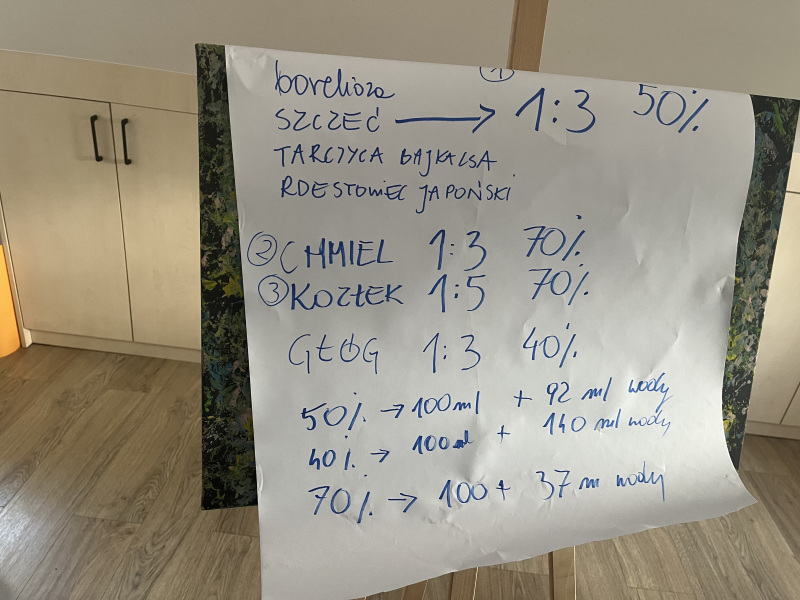 ①
borelioza
SZCZEĆ → 1:3 50%
TARCZYCA BAJKALSA
RDESTOWIEC JAPOŃSKI
② CHMIEL 1:3 70%
③ KOZŁEK 1:5 70%
GŁÓG 1:3 40%
50% → 100 ml + 92 ml wody
40% → 100 ml + 140 ml wody
70% → 100 + 37 m wody